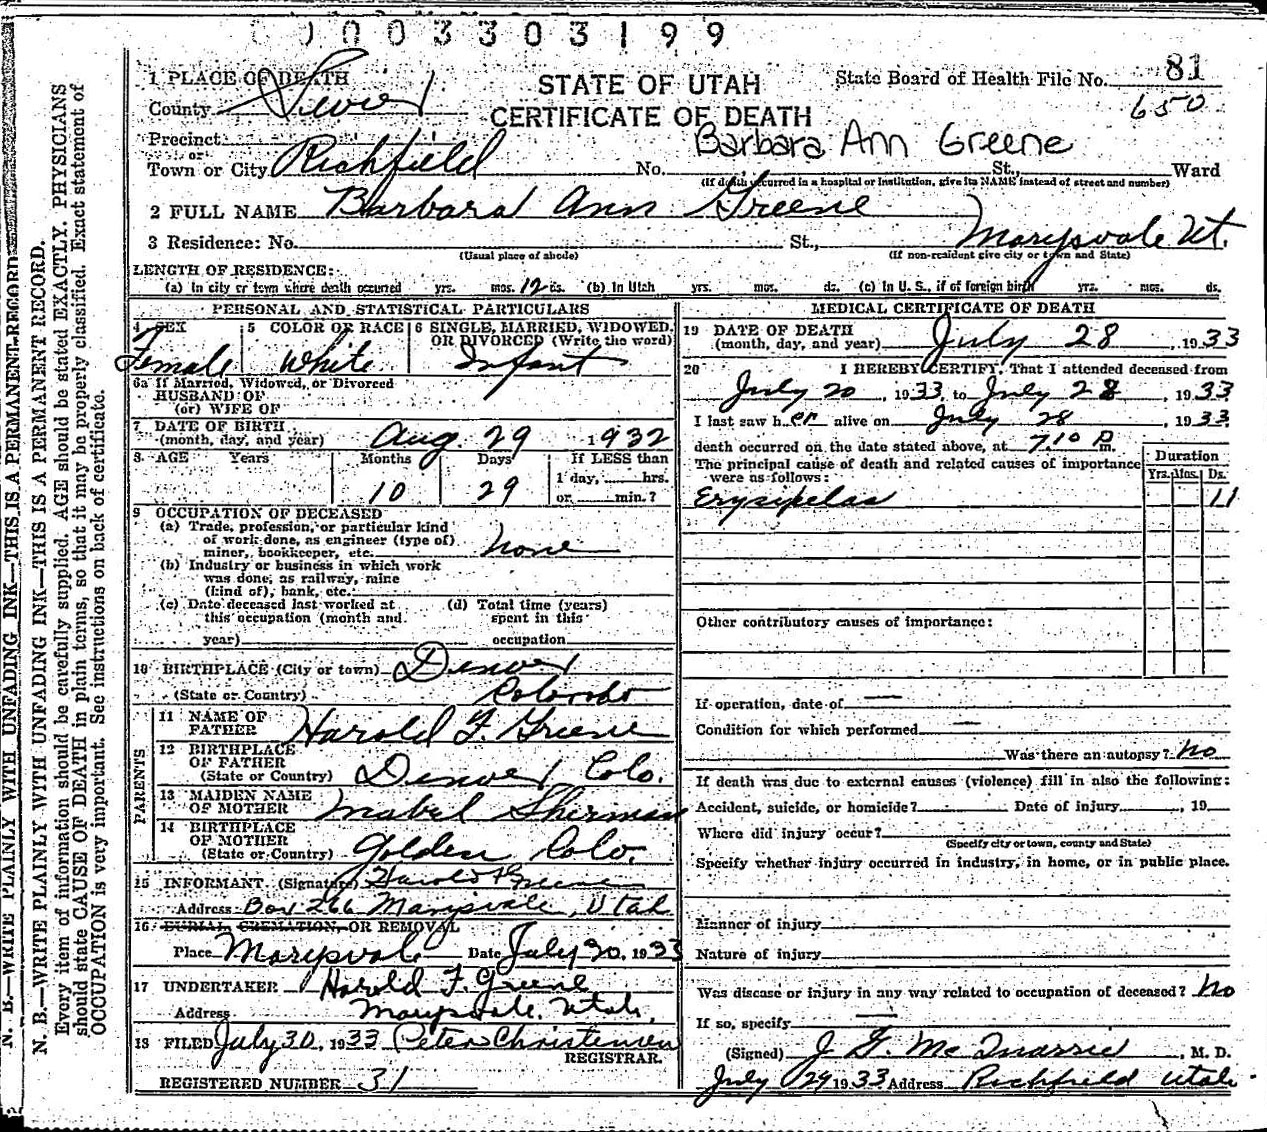 0003303199
1 PLACE OF DEATH
County Sevier
STATE OF UTAH
CERTIFICATE OF DEATH
State Board of Health File No. 81
650
Precinct
or
Town or City Richfield No. St., Ward
Barbara Ann Greene
(If death occurred in a hospital or institution, give its NAME instead of street and number)
2 FULL NAME Barbara Ann Greene
3 Residence: No. St., Marysvale Ut.
(Usual place of abode) (If non-resident give city or town and State)
LENGTH OF RESIDENCE:
(a) In city or town where death occurred yrs. mos. 12 ds. (b) In Utah yrs. mos. ds. (c) In U. S., if of foreign birth yrs. mos. ds.
PERSONAL AND STATISTICAL PARTICULARS
4 SEX Female
5 COLOR OR RACE White
6 SINGLE, MARRIED, WIDOWED, OR DIVORCED (Write the word) Infant
6a If Married, Widowed, or Divorced
HUSBAND OF
(or) WIFE OF
7 DATE OF BIRTH
(month, day, and year) Aug. 29 1932
8 AGE Years Months Days If LESS than
10 29 1 day, hrs.
or min.?
9 OCCUPATION OF DECEASED
(a) Trade, profession, or particular kind
of work done, as engineer (type of)
miner, bookkeeper, etc. None
(b) Industry or business in which work
was done, as railway, mine
(kind of), bank, etc.
(c) Date deceased last worked at
this occupation (month and
year)
(d) Total time (years)
spent in this
occupation
10 BIRTHPLACE (City or town) Denver
(State or Country) Colorado
PARENTS
11 NAME OF
FATHER Harold F. Greene
12 BIRTHPLACE
OF FATHER
(State or Country) Denver Colo.
13 MAIDEN NAME
OF MOTHER Mabel Sherman
14 BIRTHPLACE
OF MOTHER
(State or Country) Golden Colo.
15 INFORMANT (Signature) Harold F Greene
Address Box 266 Marysvale, Utah
16 BURIAL, CREMATION, OR REMOVAL
Place Marysvale Date July 30, 1933
17 UNDERTAKER Harold F. Greene
Address Marysvale, Utah.
18 FILED July 30, 1933 Peter Christensen
REGISTRAR.
REGISTERED NUMBER 31
MEDICAL CERTIFICATE OF DEATH
19 DATE OF DEATH
(month, day, and year) July 28, 1933
20 I HEREBY CERTIFY, That I attended deceased from
July 20, 1933, to July 28, 1933
I last saw her alive on July 28, 1933
death occurred on the date stated above, at 7.10 P m.
The principal cause of death and related causes of importance
were as follows:
Duration
Yrs. Mos. Ds.
Erysipelas 11
Other contributory causes of importance:
If operation, date of —
Condition for which performed —
Was there an autopsy? No
If death was due to external causes (violence) fill in also the following:
Accident, suicide, or homicide? Date of injury , 19
Where did injury occur?
(Specify city or town, county and State)
Specify whether injury occurred in industry, in home, or in public place.
Manner of injury
Nature of injury
Was disease or injury in any way related to occupation of deceased? No
If so, specify —
(Signed) J. G. McQuarrie, M. D.
July 29 1933 Address Richfield Utah.
N. B.—WRITE PLAINLY WITH UNFADING INK—THIS IS A PERMANENT RECORD
N. B.—WRITE PLAINLY WITH UNFADING INK—THIS IS A PERMANENT RECORD.
Every item of information should be carefully supplied. AGE should be stated EXACTLY. PHYSICIANS
should state CAUSE OF DEATH in plain terms, so that it may be properly classified. Exact statement of
OCCUPATION is very important. See instructions on back of certificate.